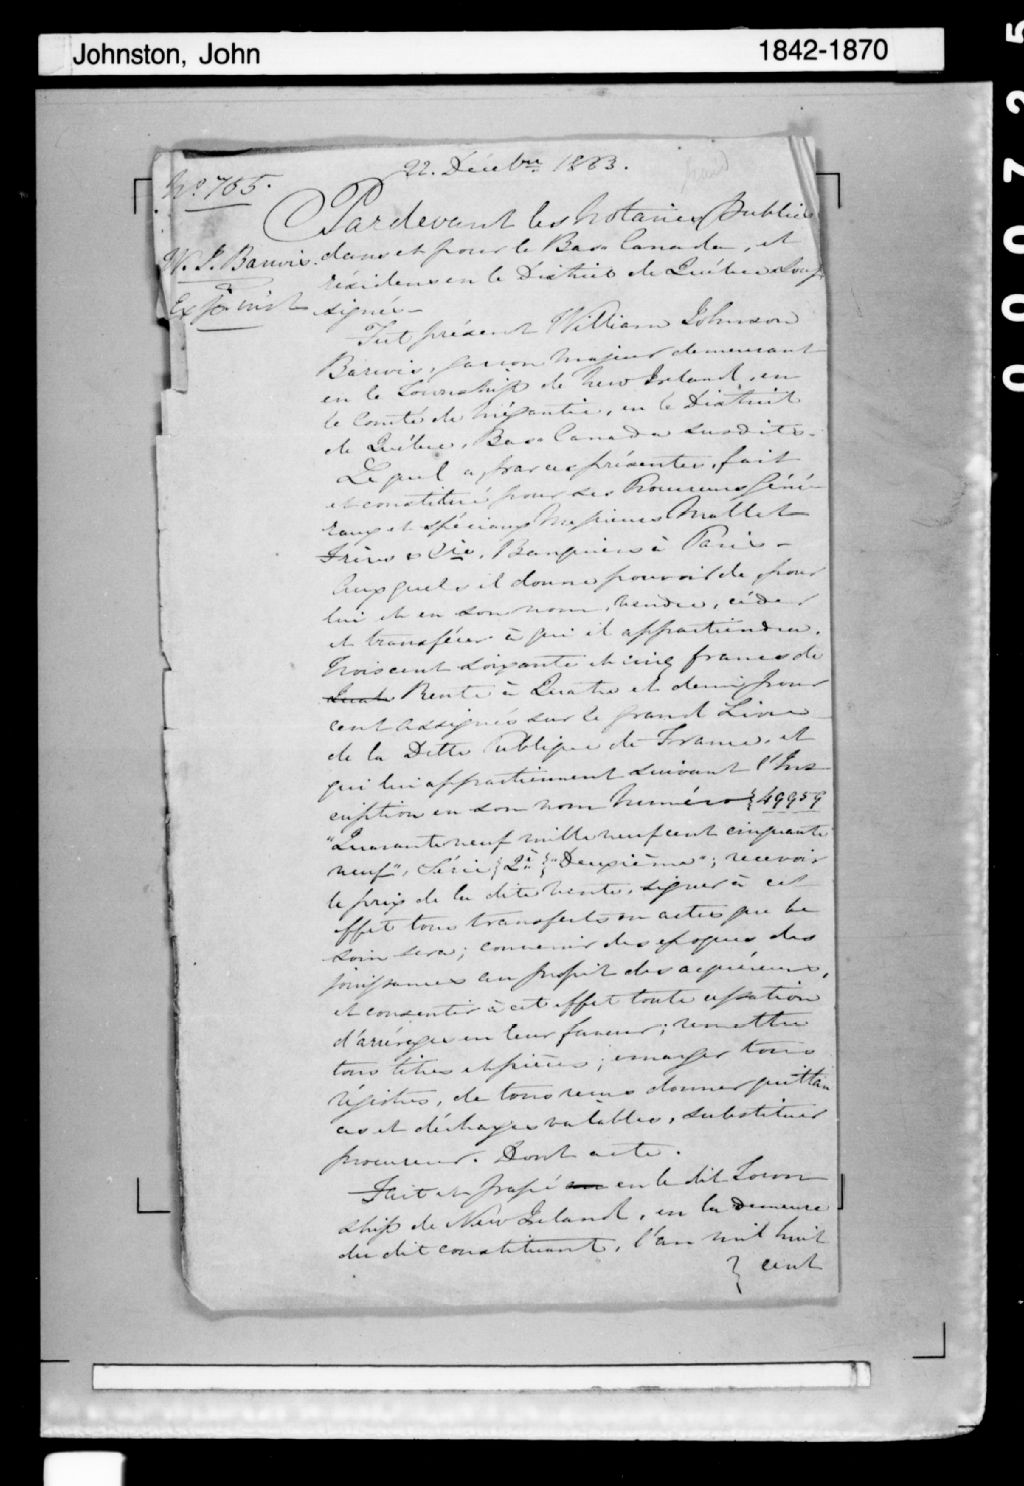 Johnston, John
1842-1870
00725
22. Décebre 1863.
No. 765.
Pardevant les Notaires Publics
W. J. Barwis
dans et pour le Bas Canada, et
résidens en le District de Québec Sous
signés.
Fut présent William Johnson
Barwis, garcon majeur demeurant
en le Township de New Ireland, en
le Comté de Mégantic, en le District
de Québec, Bas Canada susdits.
Lequel a par ces présentes, fait
et constitué pour ses Procureurs Géné-
raux et spéciaux Messieurs Mallet
Frères & Cie. Banquiers à Paris
Auxquels il donne pouvoir de, pour
lui et en son nom, vendre, céder
et transférer à qui il appartiendra,
Trois cent soixante et cinq francs de
Rente à Quatre et demi pour
cent assignés sur le grand Livre
de la Dette Publique de France, et
qui lui appartiennent suivant l'Ins
cription en son nom Numéro 49959
"Quarante neuf mille neuf cent cinquante
neuf", Série 2e "Deuxième"; recevoir
le prix de la dite vente, signer à cet
effet tous transferts ou actes que be
soin sera; convenir des epoques des
jouissances au profit des acquéreurs,
et consentir à cet effet toute cessation
d'arrérages en leur faveur; remettre
tous titres et pièces; emarger tous
régistres, de tous reçus donner quittan
ces et décharges valables, substituer
procureur. Dont acte.
Fait et passé en le dit Town
ship de New Ireland, en la demeure
du dit constituant, l'an mil huit
cent